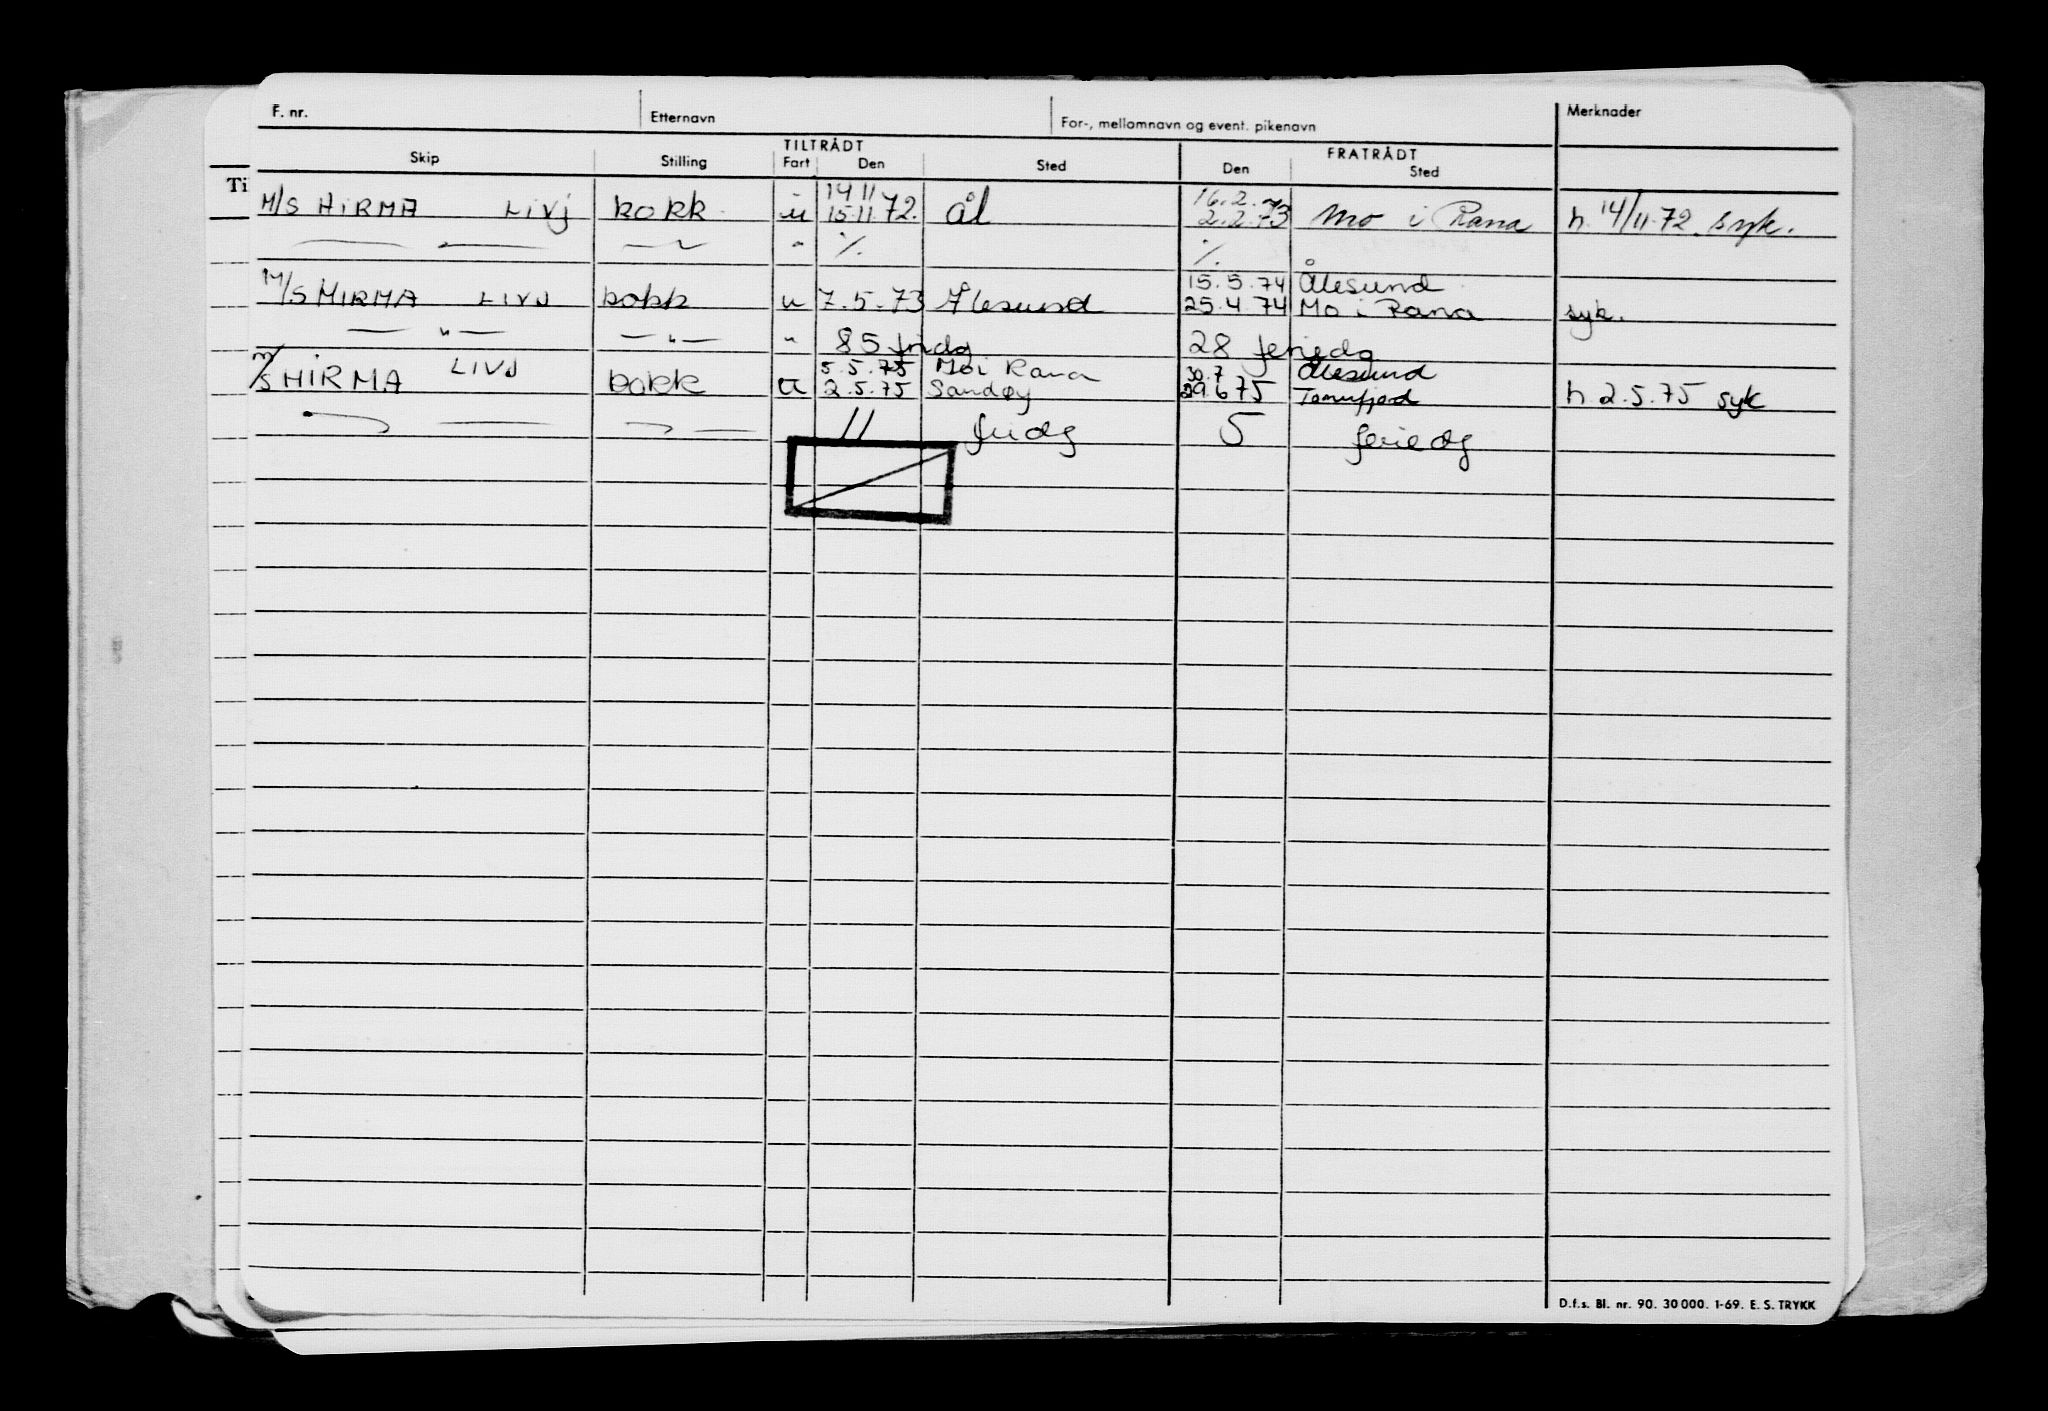 F. nr. Etternavn For-, mellomnavn og event. pikenavn Merknader
TILTRÅDT FRATRÅDT
Skip Stilling Fart Den Sted Den Sted
Ti
14 11 16.2.73
M/S HIRMA LIVJ kokk u 15.11.72. Ål 2.2.73 Mo i Rana h. 14/11.72. syk.
— — — " % %
15.5.74 Ålesund
M/S HIRMA LIVJ kokk u 7.5.73 Ålesund 25.4.74 Mo i Rana syk.
— " — — " — " 85 fridg 28 feriedg
LIVJ 5.5.75 Mo i Rana 30.7 Ålesund
M/S HIRMA kokk u 2.5.75 Sandøy 29.6.75 h. 2.5.75 syk
— — — — 11 fridg 5 feriedg
D.f.s. Bl. nr. 90. 30 000. 1-69. E. S. TRYKK